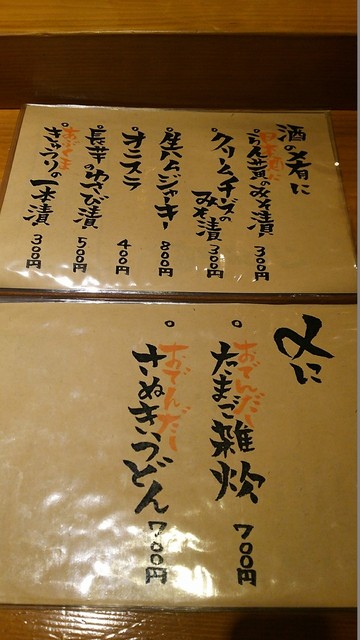 酒の肴に
日本酒に
。らん黄のみそ漬 300円
。クリームチーズの
みそ漬 300円
。生ハムジャーキー 800円
。オニスラ 400円
。長芋のわさび漬 500円
。きゅうりの一本漬 300円
〆に
おでんだし
。たまご雑炊 700円
おでんだし
。さぬきうどん 700円